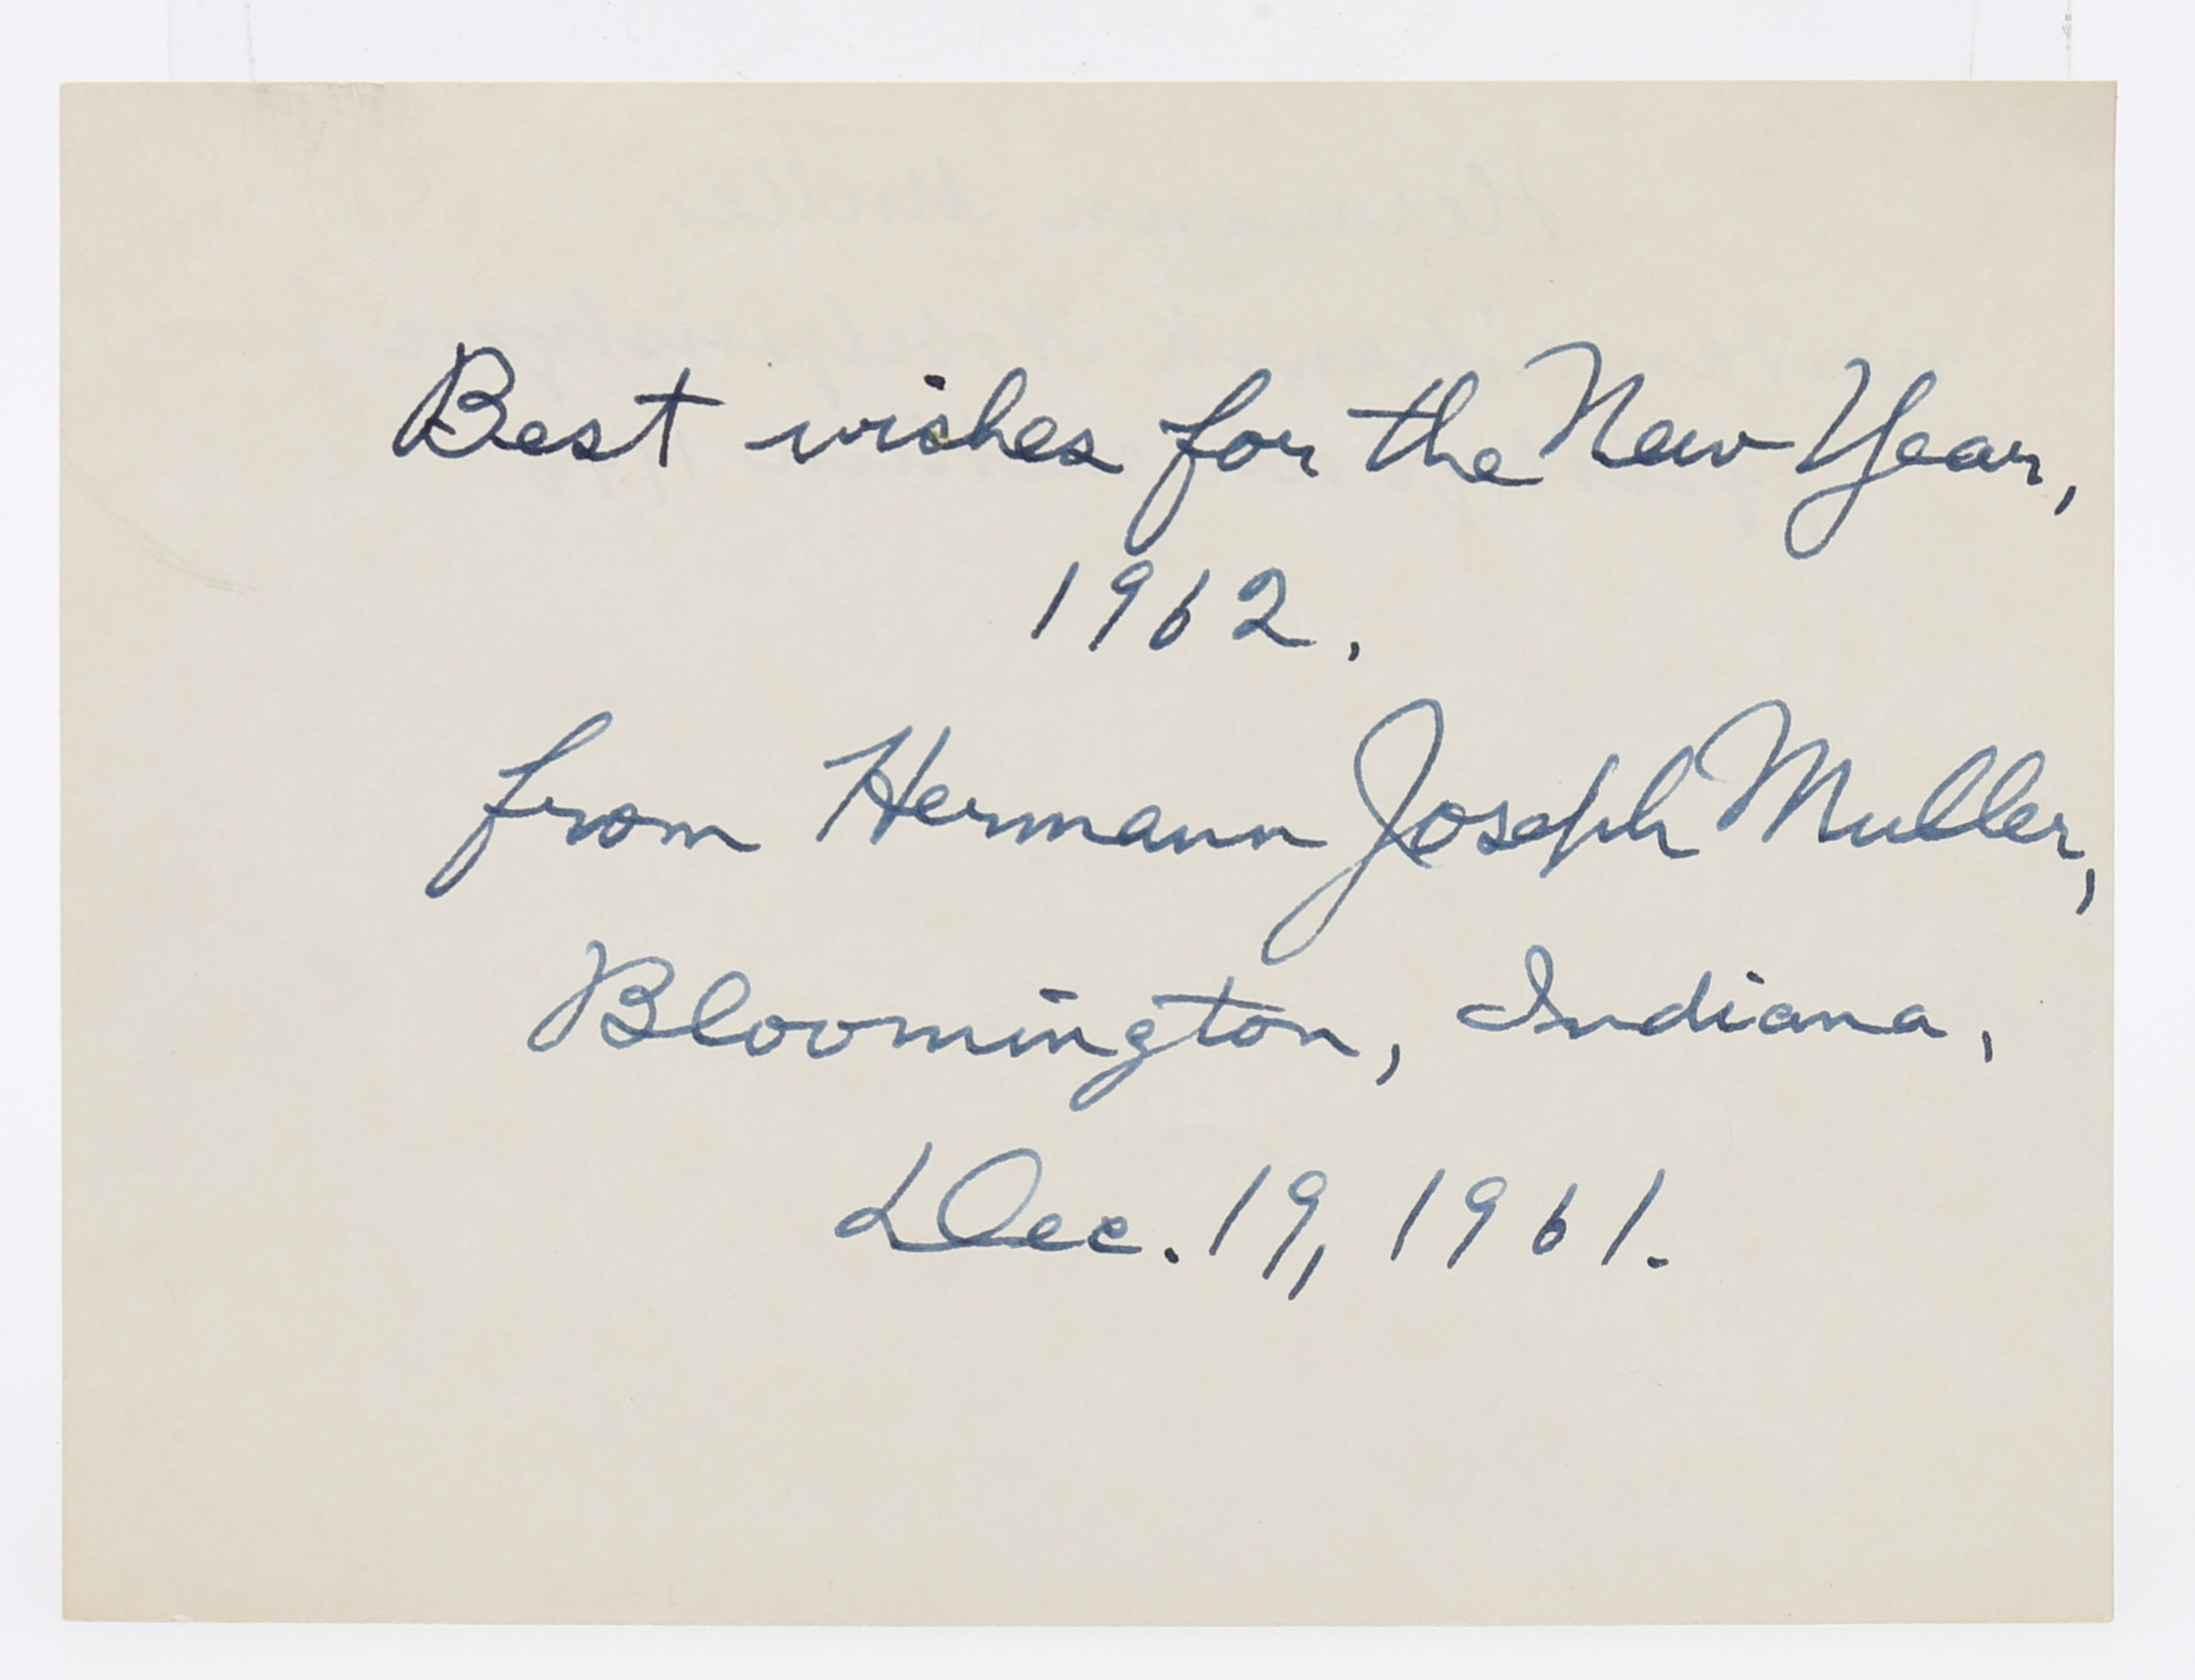 Best wishes for the New Year,
1962.
from Hermann Joseph Muller,
Bloomington, Indiana,
Dec. 19, 1961.